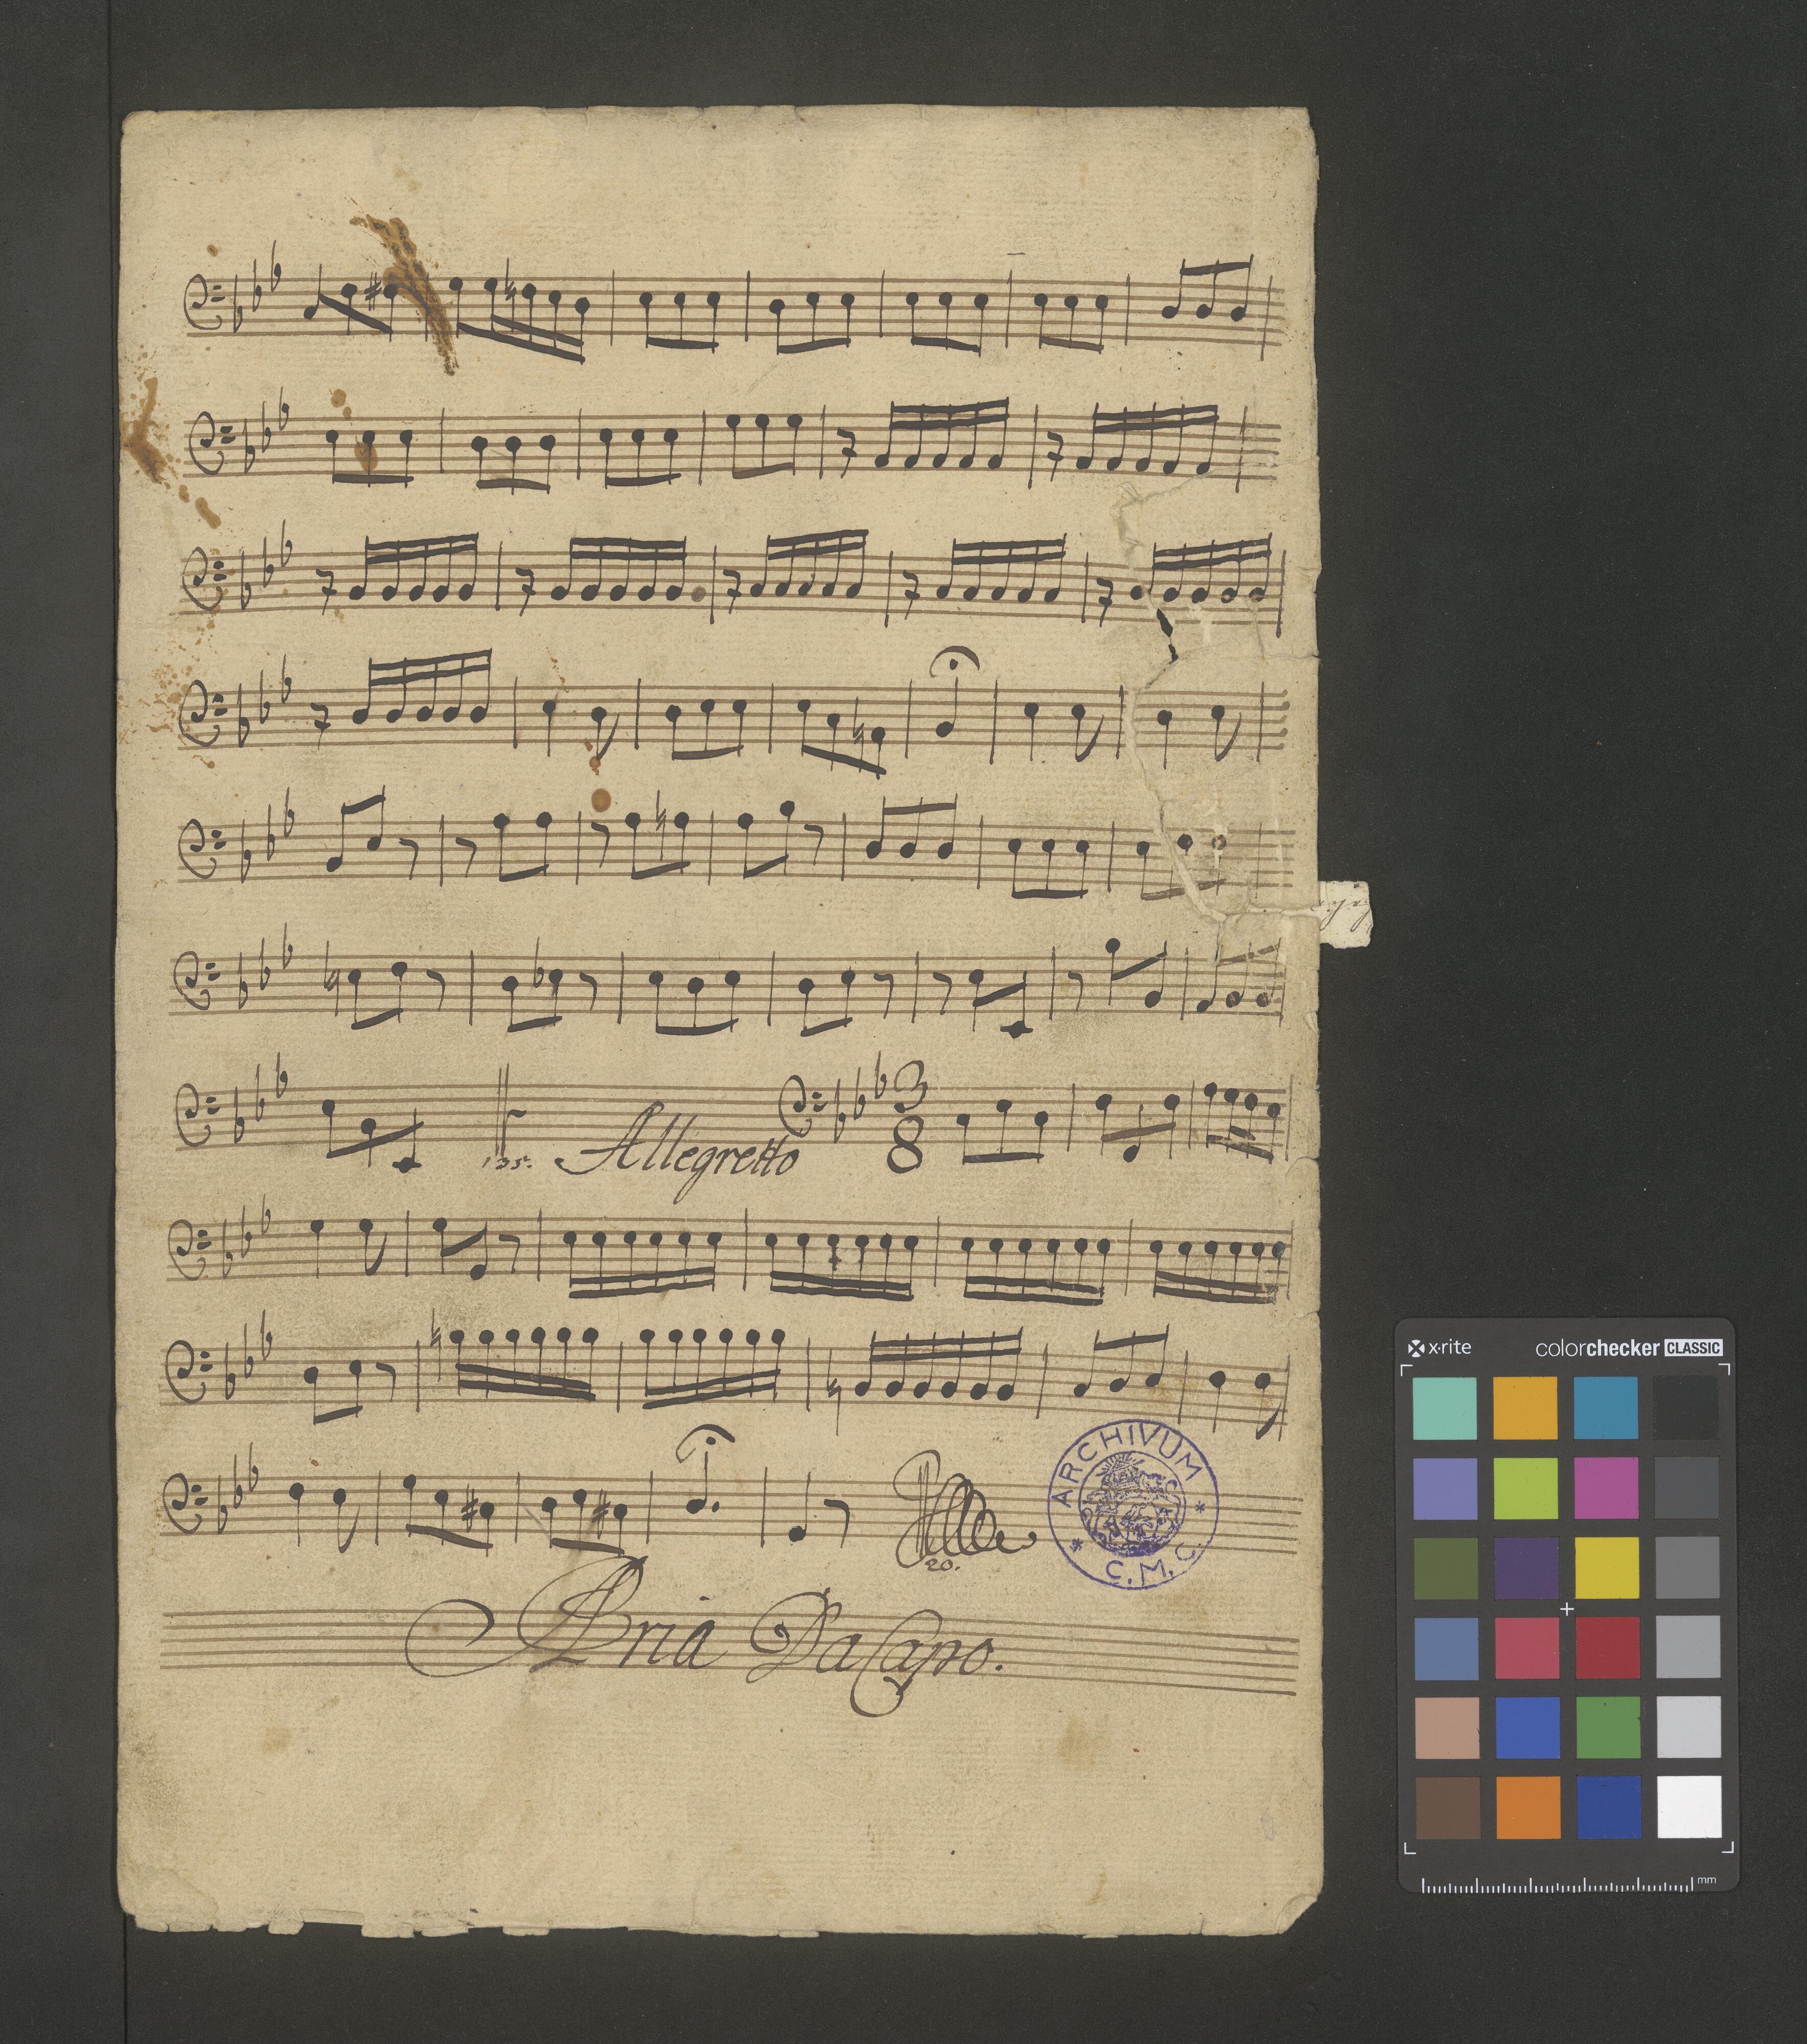 135. Allegretto 3 8
20.
ARCHIVUM
C. M. C.
Aria Da Capo.
x-rite colorchecker CLASSIC
mm